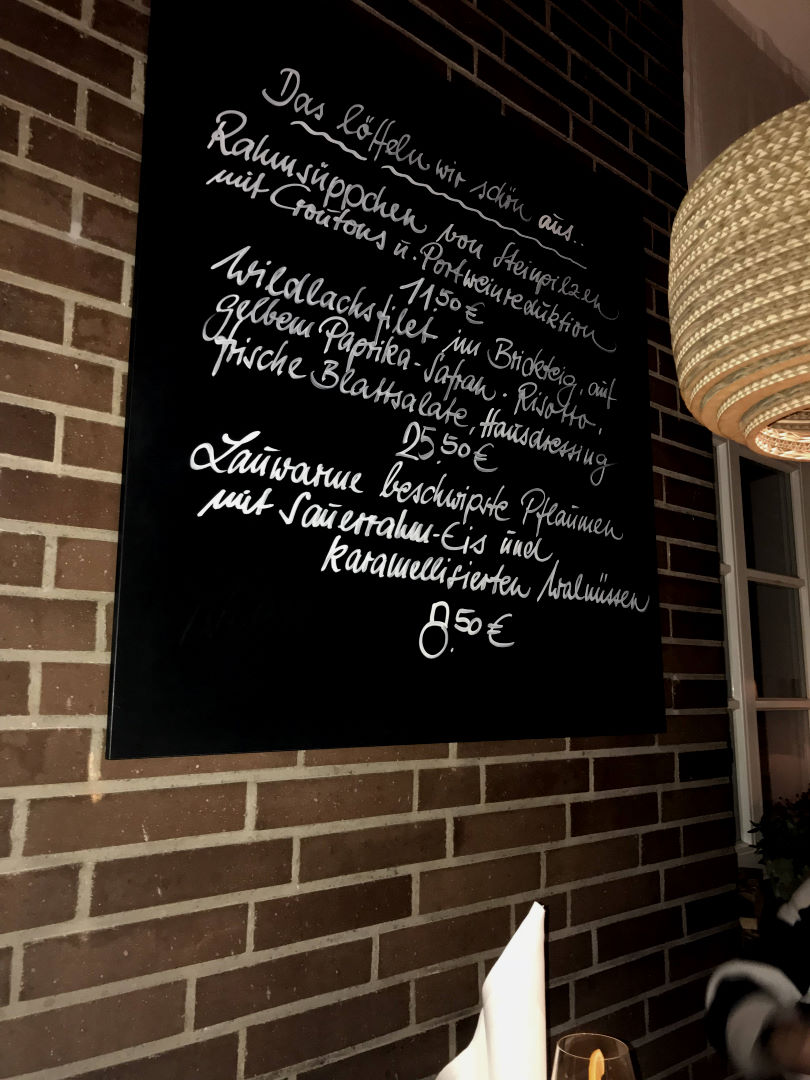 Das löffeln wir schön aus..
Rahmsüppchen von Steinpilzen
mit Croûtons u. Portweinreduktion
11.50 €
Wildlachsfilet im Brickteig, auf
gelbem Paprika-Safran-Risotto,
frische Blattsalate, Hausdressing
25.50 €
Lauwarme beschwipste Pflaumen
mit Sauerrahm-Eis und
karamellisierten Walnüssen
8.50 €